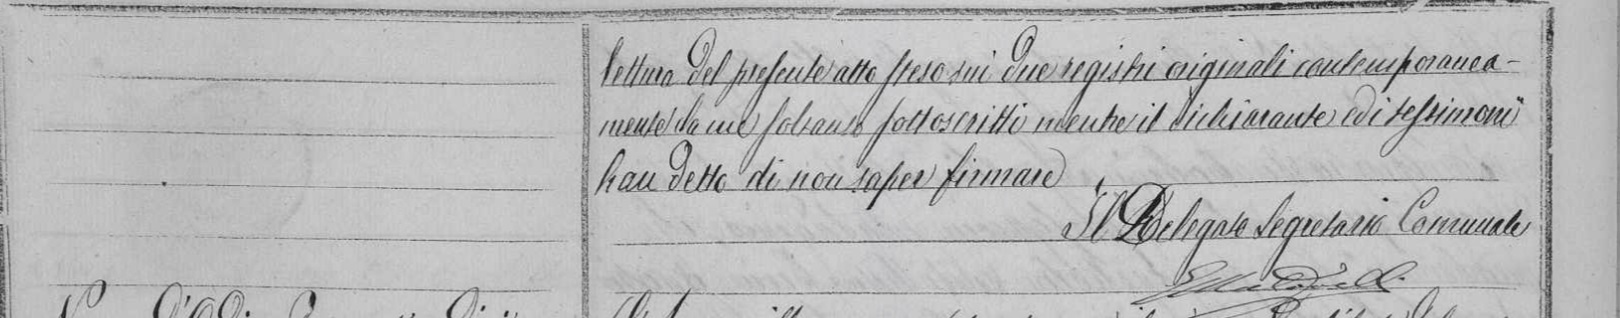 lettura del presente atto steso sui due registri originali contemporanea-
mente da me soltanto sottoscritti mentre il dichiarante ed i testimonii
han detto di non saper firmare
Il Delegato Segretario Comunale